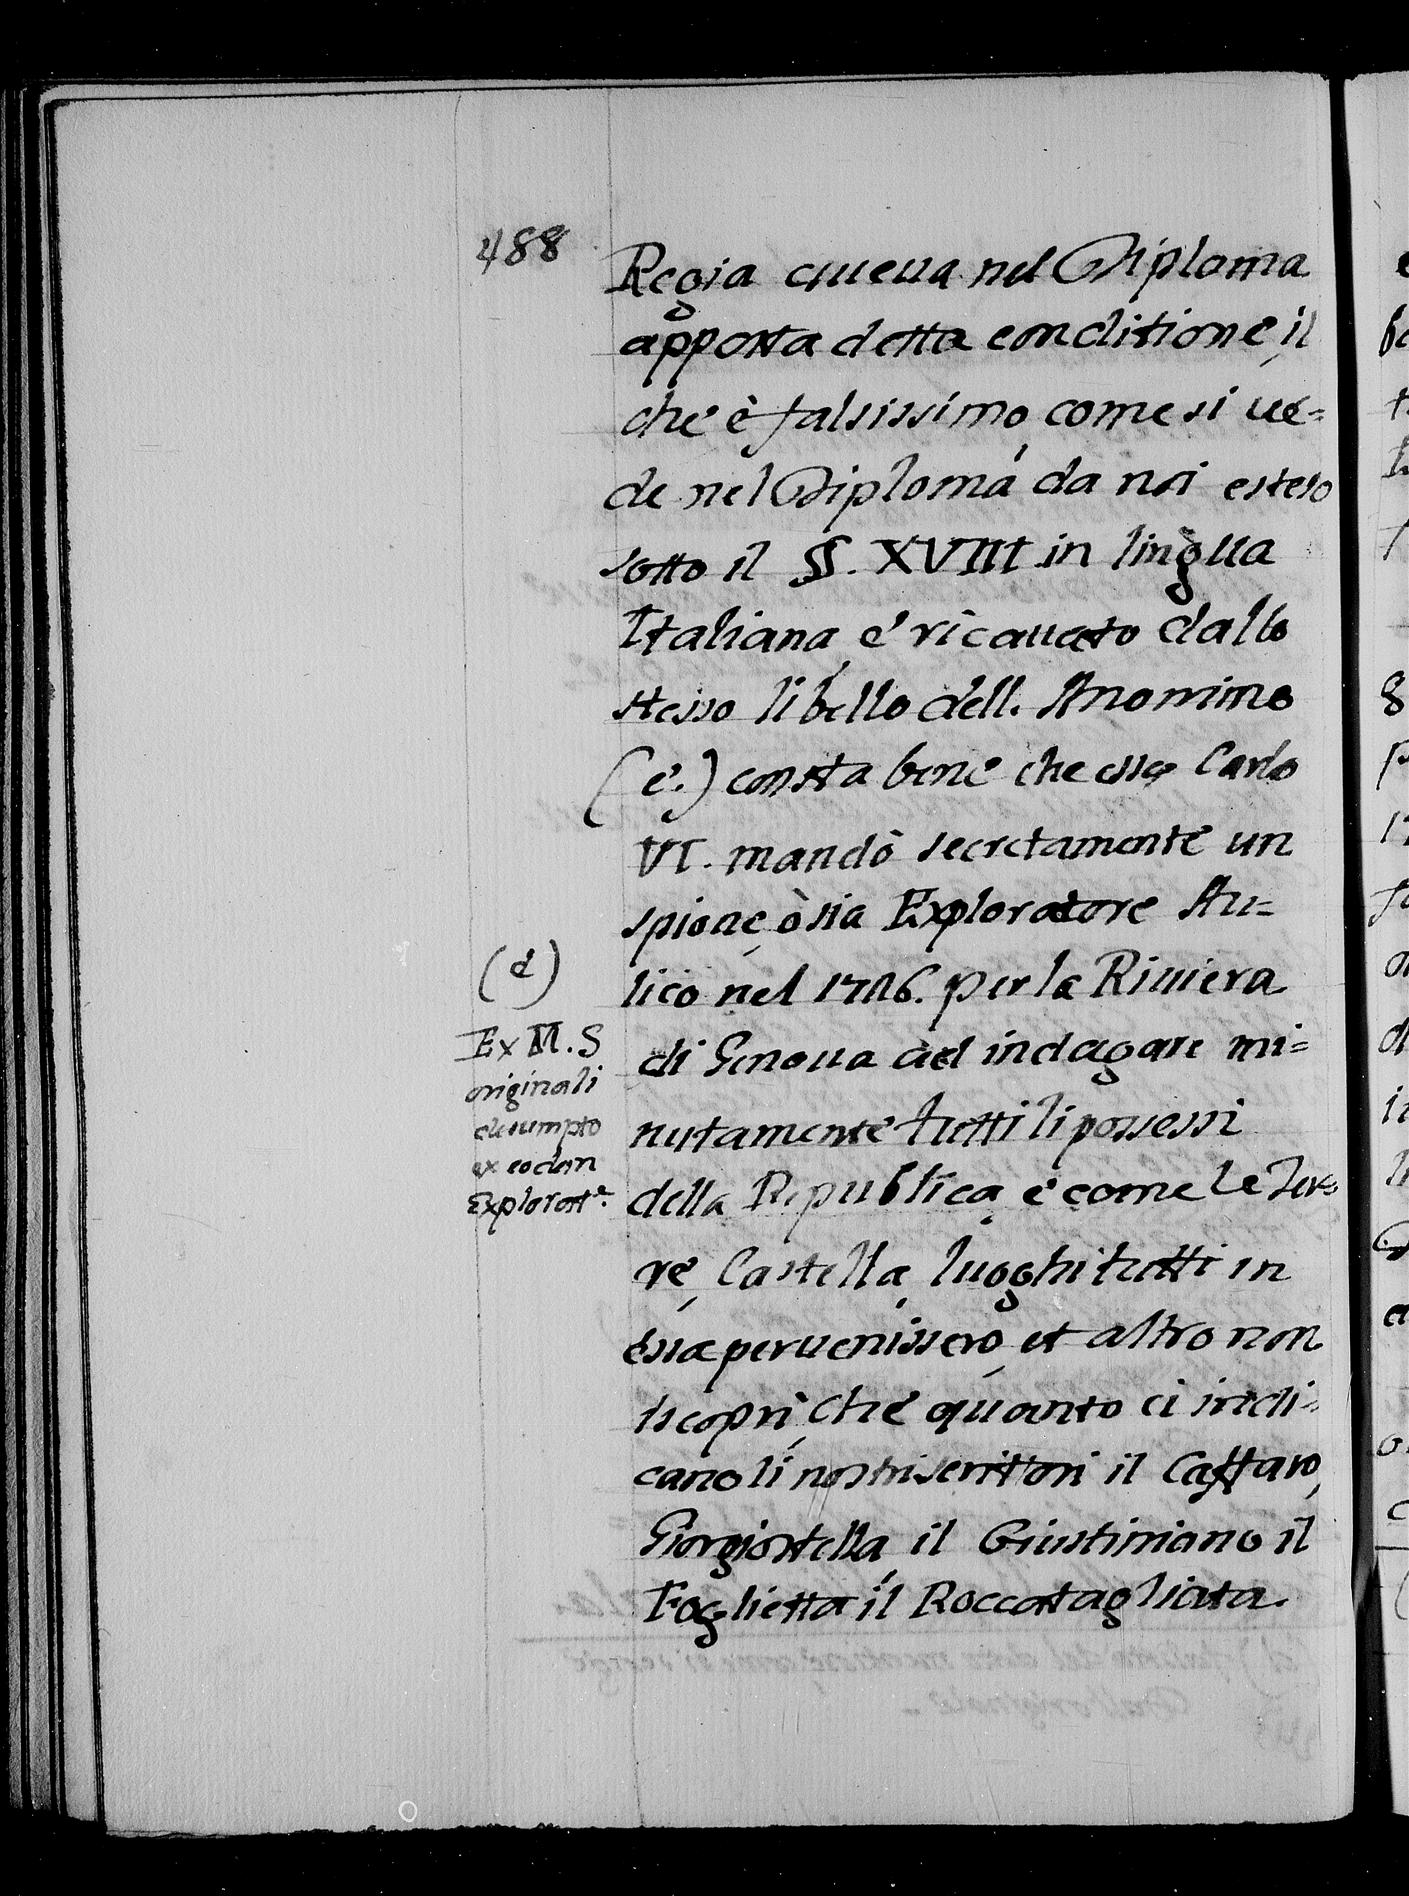 488
Regia aueua nel Diploma
apposta detta conditione, il
che è falsissimo, come si ue=
de nel Diploma da noi esteso
sotto il §§. XVIII in lingua
Italiana, e ricauato dallo
stesso libello dell. Anonimo
(e.) consta bene che esso Carlo
VI. mandò secretamente un
spione, ò sia Exploratore Au=
lico nel 1726. per la Riuiera
di Genoua ad indagare mi=
nutamente tutti li possessi
della Republica, e come le Ter=
re, Castella, luoghi tutti in
essa peruenissero, et altro non
scoprì, che quanto ci indi=
cano li nostri scrittori il Caffaro,
Giorgio stella, il Giustiniano il
Foglietta il Roccatagliata.
(d)
Ex M.S
originali
desumpto
ex eodem
Explorate.